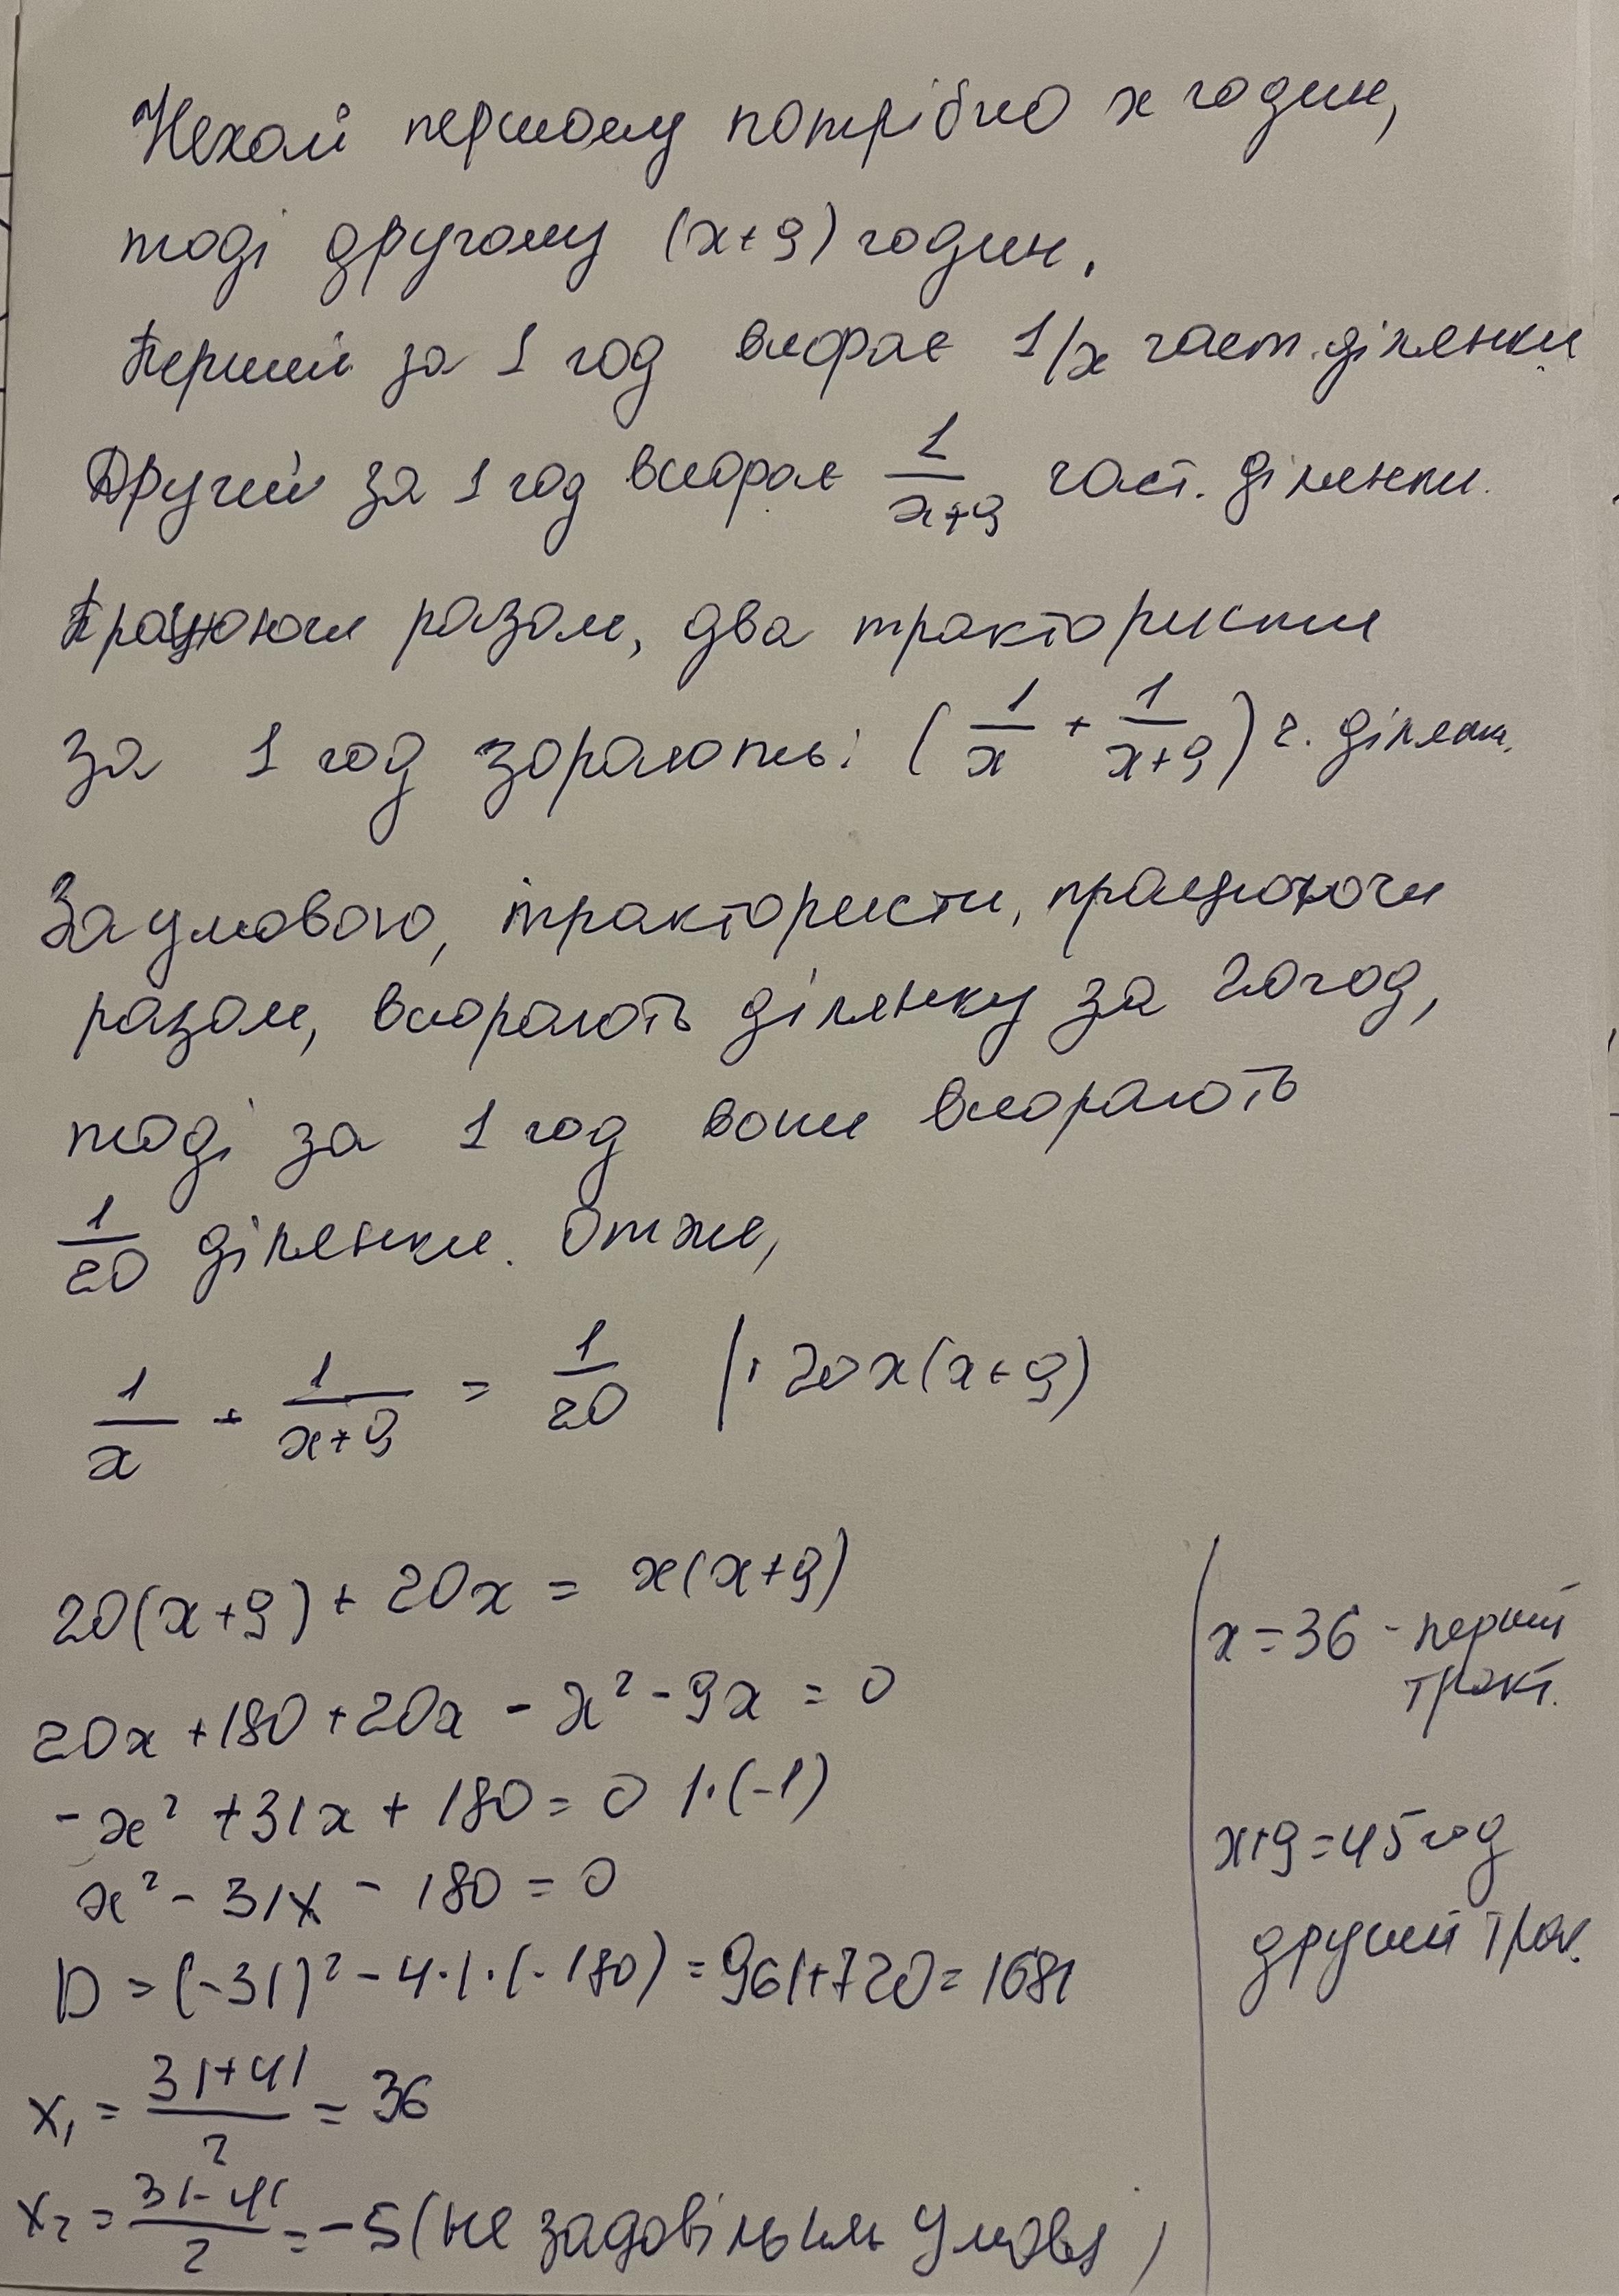 Нехай першому потрібно x годин,
тоді другому (x+9) годин.
Перший за 1 год виорає 1/x част. ділянки
Другий за 1 год виорає 1/(x+9) част. ділянки.
Працюючи разом, два трактористи
за 1 год зорають: (1/x + 1/(x+9)) ч. ділянк.
За умовою, трактористи, працюючи
разом, виорають ділянку за 20 год,
тоді за 1 год вони виорають
1/20 ділянки. Отже,
1/x + 1/(x+9) = 1/20 |· 20x(x+9)
20(x+9) + 20x = x(x+9)
20x + 180 + 20x - x² - 9x = 0
-x² + 31x + 180 = 0 |·(-1)
x² - 31x - 180 = 0
D = (-31)² - 4·1·(-180) = 961+720 = 1681
x₁ = (31+41)/2 = 36
x₂ = (31-41)/2 = -5 (не задовільняє умову)
x = 36 - перший
тракт.
x+9=45 год
другий трак.